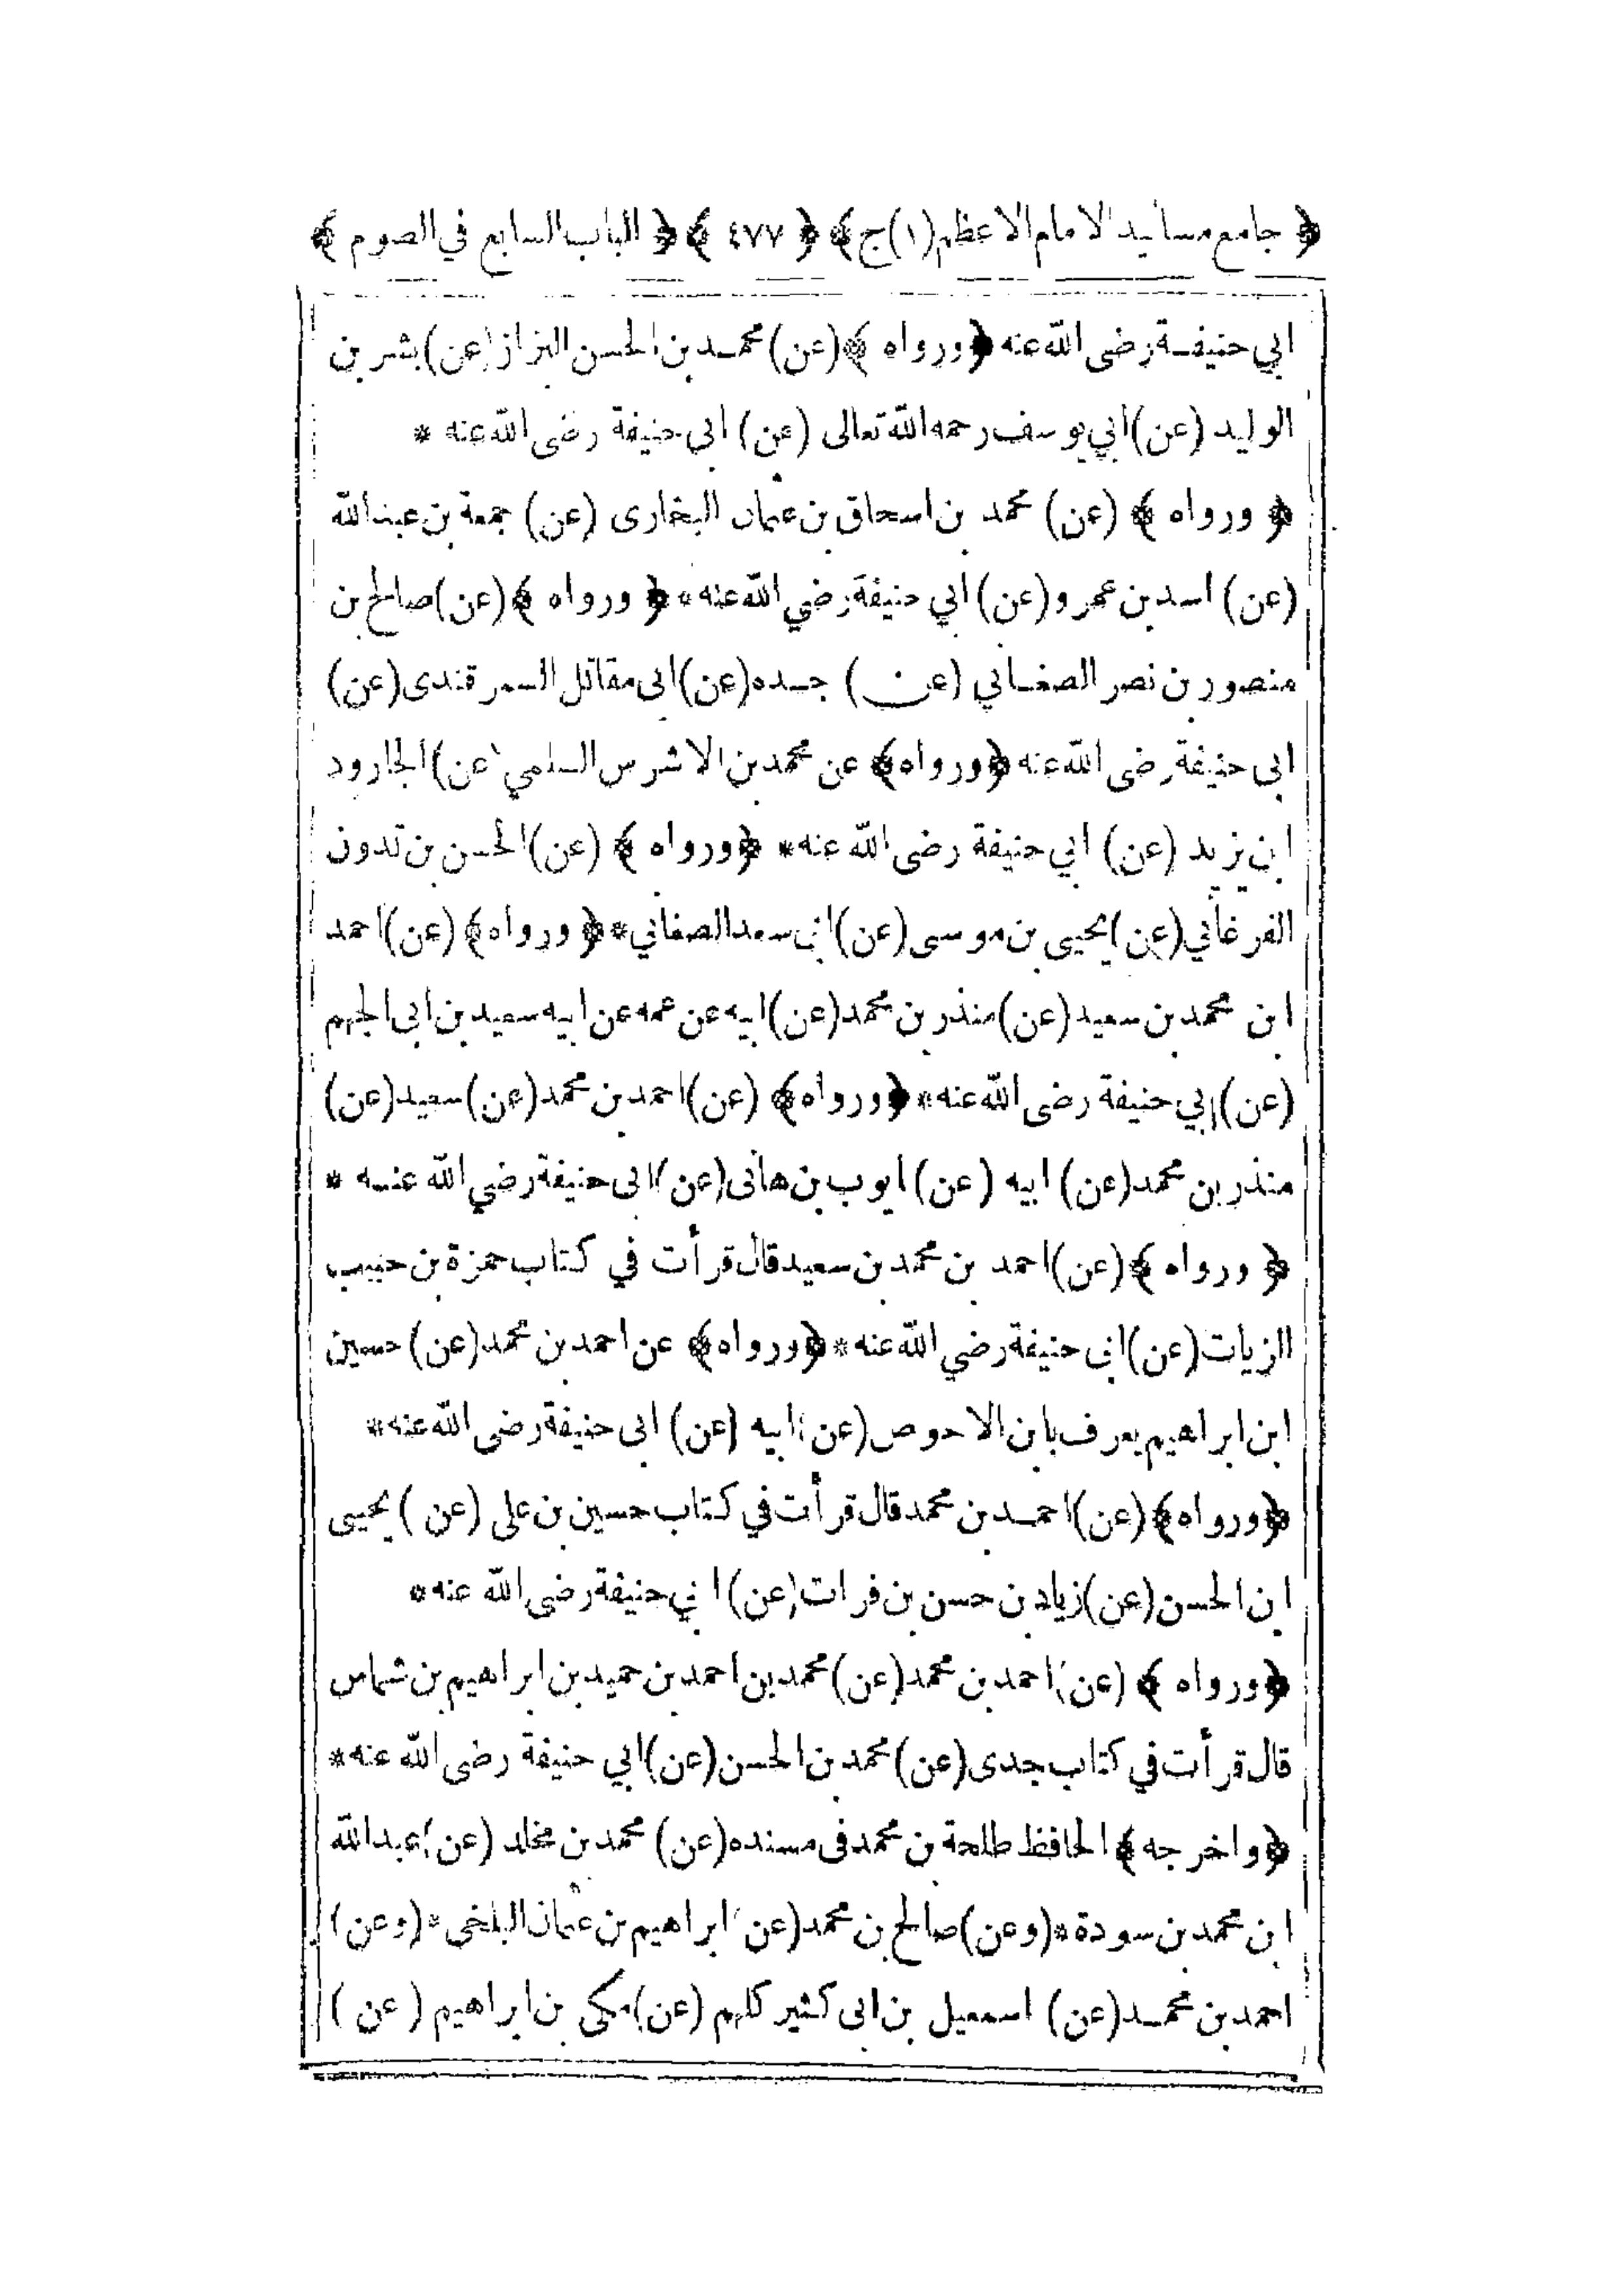 ﴿ جامع مسانيد الامام الاعظم (١) ج ﴾ ﴿ ٤٧٧ ﴾ ﴿ الباب السابع في الصوم ﴾
ابي حنيفة رضى الله عنه ﴿ ورواه ﴾ (عن) محمد بن الحسن البزاز (عن) بشر بن
الوليد (عن) ابي يوسف رحمه الله تعالى (عن) ابى حنيفة رضى الله عنه *
﴿ ورواه ﴾ (عن) محمد بن اسحاق بن عثمان البخارى (عن) جمعة بن عبد الله
(عن) اسد بن عمرو (عن) ابي حنيفة رضي الله عنه * ﴿ ورواه ﴾ (عن) صالح بن
منصور بن نصر الصغاني (عن) جده (عن) ابى مقاتل السمرقندى (عن)
ابى حنيفة رضى الله عنه ﴿ ورواه ﴾ عن محمد بن الاشرس السلمي (عن) الجارود
ابن يزيد (عن) ابي حنيفة رضى الله عنه * ﴿ ورواه ﴾ (عن) الحسن بن تدون
الفرغاني (عن) يحيى بن موسى (عن) ابى سعد الصغاني * ﴿ ورواه ﴾ (عن) احمد
ابن محمد بن سعيد (عن) منذر بن محمد (عن) ابيه عن عمه عن ابيه سعيد بن ابى الجهم
(عن) ابي حنيفة رضى الله عنه * ﴿ ورواه ﴾ (عن) احمد بن محمد (عن) سعيد (عن)
منذر بن محمد (عن) ابيه (عن) ايوب بن هانى (عن) ابى حنيفة رضي الله عنه *
﴿ ورواه ﴾ (عن) احمد بن محمد بن سعيد قال قرأت في كتاب حمزة بن حبيب
الزيات (عن) ابى حنيفة رضي الله عنه * ﴿ ورواه ﴾ عن احمد بن محمد (عن) حسين
ابن ابراهيم يعرف بابن الاحوص (عن) ابيه (عن) ابى حنيفة رضى الله عنه *
﴿ ورواه ﴾ (عن) احمد بن محمد قال قرأت في كتاب حسين بن على (عن) يحيى
ابن الحسن (عن) زياد بن حسن بن فرات (عن) ابي حنيفة رضى الله عنه *
﴿ ورواه ﴾ (عن) احمد بن محمد (عن) محمد بن احمد بن حميد بن ابراهيم بن شماس
قال قرأت في كتاب جدى (عن) محمد بن الحسن (عن) ابي حنيفة رضى الله عنه *
﴿ واخرجه ﴾ الحافظ طلحة بن محمد فى مسنده (عن) محمد بن مخلد (عن) عبد الله
ابن محمد بن سودة * (وعن) صالح بن محمد (عن) ابراهيم بن عثمان البلخى * (وعن)
احمد بن محمد (عن) اسمعيل بن ابى كثير كلهم (عن) مكى بن ابراهيم (عن)